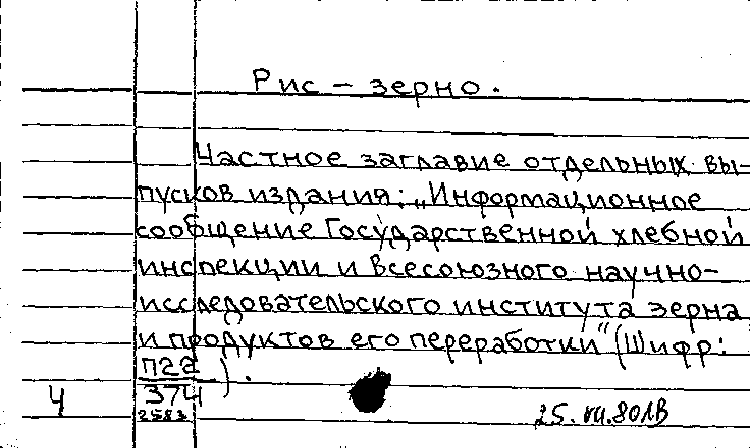 Рис – зерно.
Частное заглавие отдельных вы-
пусков издания: „Информационное
сообщение Государственной хлебной
инспекции и Всесоюзного научно-
исследовательского института зерна
и продуктов его переработки" (Шифр:
П22
374 ).
2583
Ч